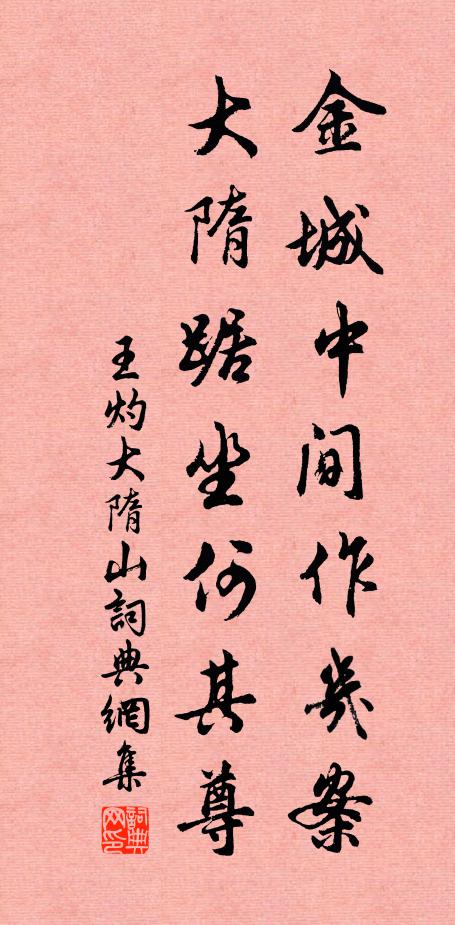 金城中间作几案
大隋踞坐何其尊
王灼大隋山詞典網集
詞典网印